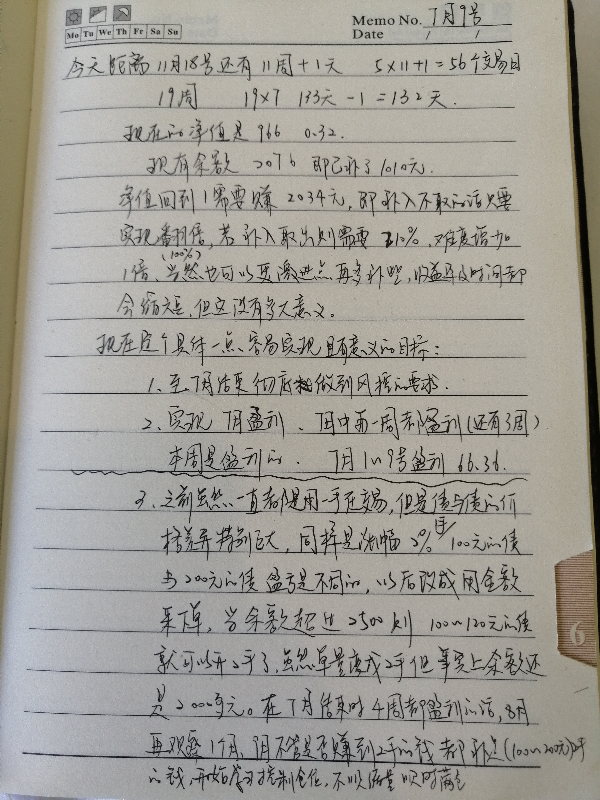 Memo No. 7月9号
Mo Tu We Th Fr Sa Su
Date / /
今天距离11月18号还有11周+1天 5×11+1=56个交易日
19周 19×7 133天-1=132天.
现在的净值是966 0.32.
现有余数 2076 即已补了1010元.
净值回到1需要赚2034元,即补入不取的话只要
实现翻倍,若补入取出则需要210%,难度增加
(100%)
1倍、当然也可以更激进点再多补些,收益率及时间都
会缩短,但这没有多大意义。
现在定个具体一点容易实现且有意义的目标:
1、至7月结束彻底做到风控的要求.
2、实现7月盈利、7月中每一周都盈利(还有3周)
本周是盈利的. 7月1~9号盈利66.36.
3、之前虽然一直都是用一手在交易,但是债与债的价
格差异特别巨大,同样是涨幅2%一手100元的债
与200元的债盈亏是不同的,以后改成用金额
来下单,当余额超过2500则100~120元的债
就可以开2手了,虽然单量变成2手但事实上余额还
是2000多元。在7月结束时4周都盈利的话,8月
再观察1个月,8月不管是否赚到2手的钱都补点(100~200元)2手
的钱,开始学习控制仓位,不以
6